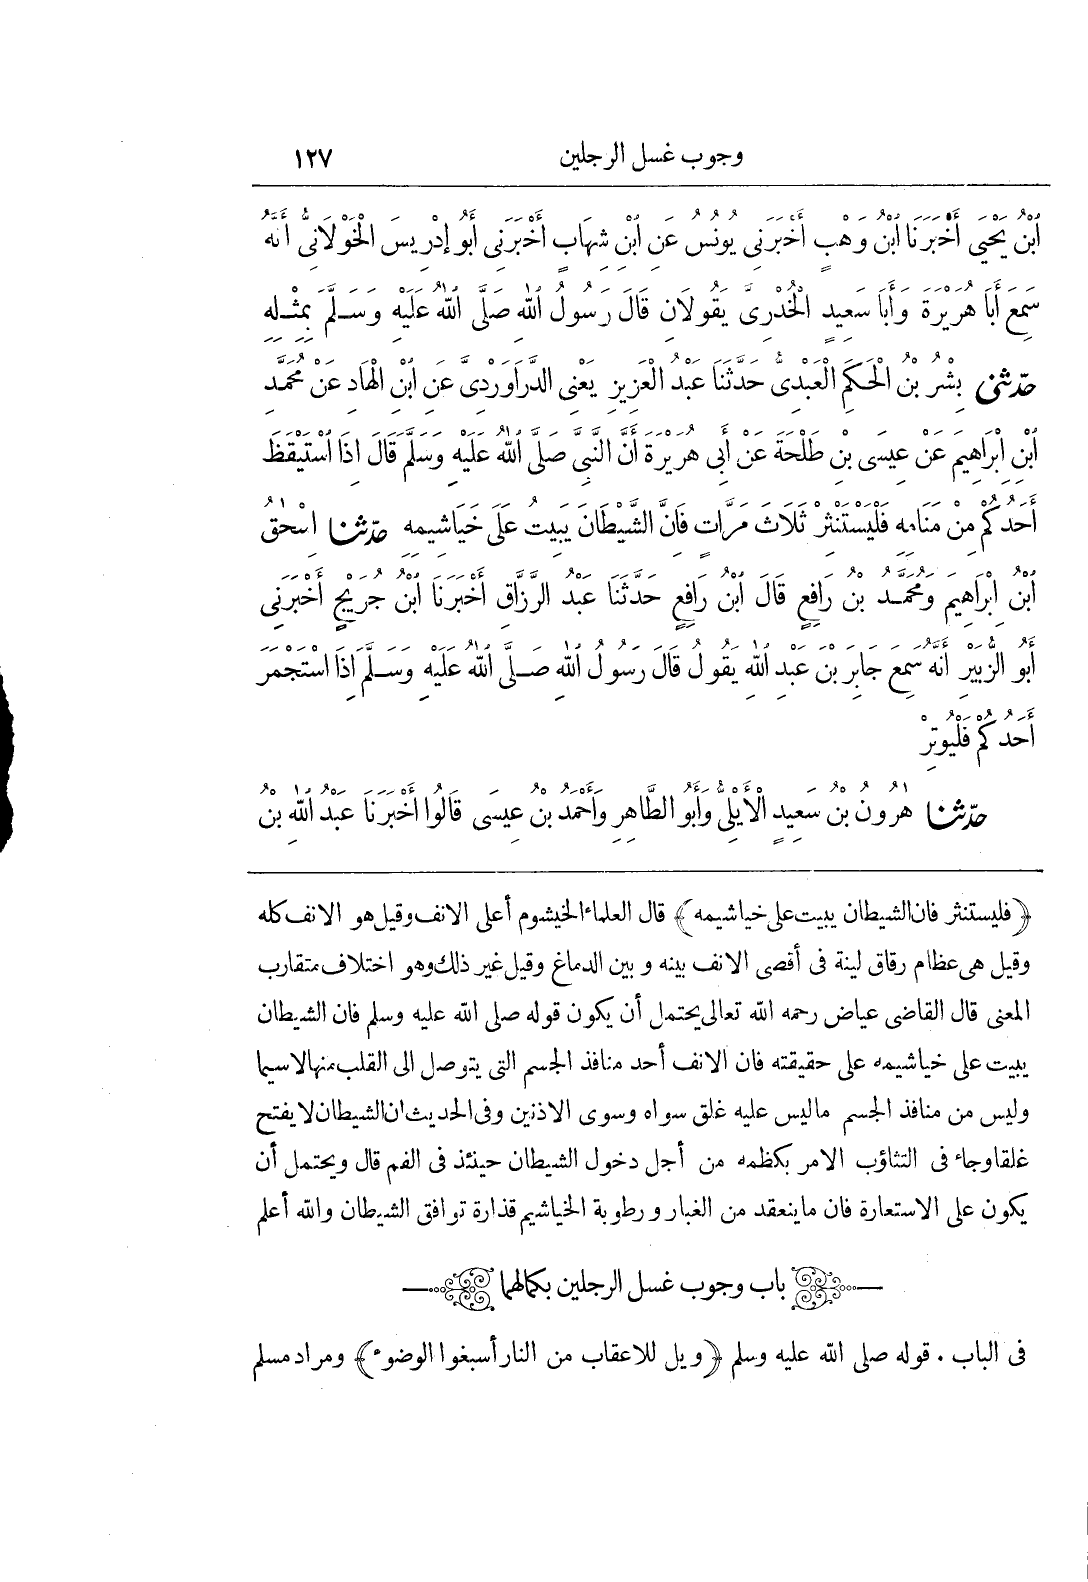 وجوب غسل الرجلين ١٢٧
ابْنُ يَحْيَى أَخْبَرَنَا ابْنُ وَهْبٍ أَخْبَرَنِى يُونُسُ عَنِ ابْنِ شِهَابٍ أَخْبَرَنِى أَبُو إِدْرِيسَ الْخَوْلَانِىُّ أَنَّهُ
سَمِعَ أَبَا هُرَيْرَةَ وَأَبَا سَعِيدٍ الْخُدْرِىَّ يَقُولَانِ قَالَ رَسُولُ اللهِ صَلَّى اللهُ عَلَيْهِ وَسَلَّمَ بِمِثْلِهِ
حدّثنى بِشْرُ بْنُ الْحَكَمِ الْعَبْدِىُّ حَدَّثَنَا عَبْدُ الْعَزِيزِ يَعْنِى الدَّرَاوَرْدِىَّ عَنِ ابْنِ الْهَادِ عَنْ مُحَمَّدِ
ابْنِ إِبْرَاهِيمَ عَنْ عِيسَى بْنِ طَلْحَةَ عَنْ أَبِى هُرَيْرَةَ أَنَّ النَّبِىَّ صَلَّى اللهُ عَلَيْهِ وَسَلَّمَ قَالَ اذَا اسْتَيْقَظَ
أَحَدُكُمْ مِنْ مَنَامِهِ فَلْيَسْتَنْثِرْ ثَلَاثَ مَرَّاتٍ فَانَّ الشَّيْطَانَ يَبِيتُ عَلَى خَيَاشِيمِهِ حدّثنا اسْحٰقُ
ابْنُ ابْرَاهِيمَ وَمُحَمَّدُ بْنُ رَافِعٍ قَالَ ابْنُ رَافِعٍ حَدَّثَنَا عَبْدُ الرَّزَّاقِ أَخْبَرَنَا ابْنُ جُرَيْجٍ أَخْبَرَنِى
أَبُو الزُّبَيْرِ أَنَّهُ سَمِعَ جَابِرَ بْنَ عَبْدِ اللهِ يَقُولُ قَالَ رَسُولُ اللهِ صَلَّى اللهُ عَلَيْهِ وَسَلَّمَ اذَا اسْتَجْمَرَ
أَحَدُكُمْ فَلْيُوتِرْ
حدّثنا هٰرُونُ بْنُ سَعِيدٍ الْأَيْلِىُّ وَأَبُو الطَّاهِرِ وَأَحْمَدُ بْنُ عِيسَى قَالُوا أَخْبَرَنَا عَبْدُ اللهِ بْنُ
﴿فليستنثر فان الشيطان يبيت على خياشيمه﴾ قال العلماء الخيشوم أعلى الانف وقيل هو الانف كله
وقيل هى عظام رقاق لينة فى أقصى الانف بينه و بين الدماغ وقيل غير ذلك وهو اختلاف متقارب
المعنى قال القاضى عياض رحمه الله تعالى يحتمل أن يكون قوله صلى الله عليه وسلم فان الشيطان
يبيت على خياشيمه على حقيقته فان الانف أحد منافذ الجسم التى يتوصل الى القلب منها لاسيما
وليس من منافذ الجسم ماليس عليه غلق سواه وسوى الاذنين وفى الحديث ان الشيطان لا يفتح
غلقا وجاء فى التثاؤب الامر بكظمه من أجل دخول الشيطان حينئذ فى الفم قال ويحتمل أن
يكون على الاستعارة فان ماينعقد من الغبار و رطوبة الخياشيم قذارة توافق الشيطان والله أعلم
باب وجوب غسل الرجلين بكمالهما
فى الباب . قوله صلى الله عليه وسلم ﴿ويل للاعقاب من النار أسبغوا الوضوء﴾ ومراد مسلم